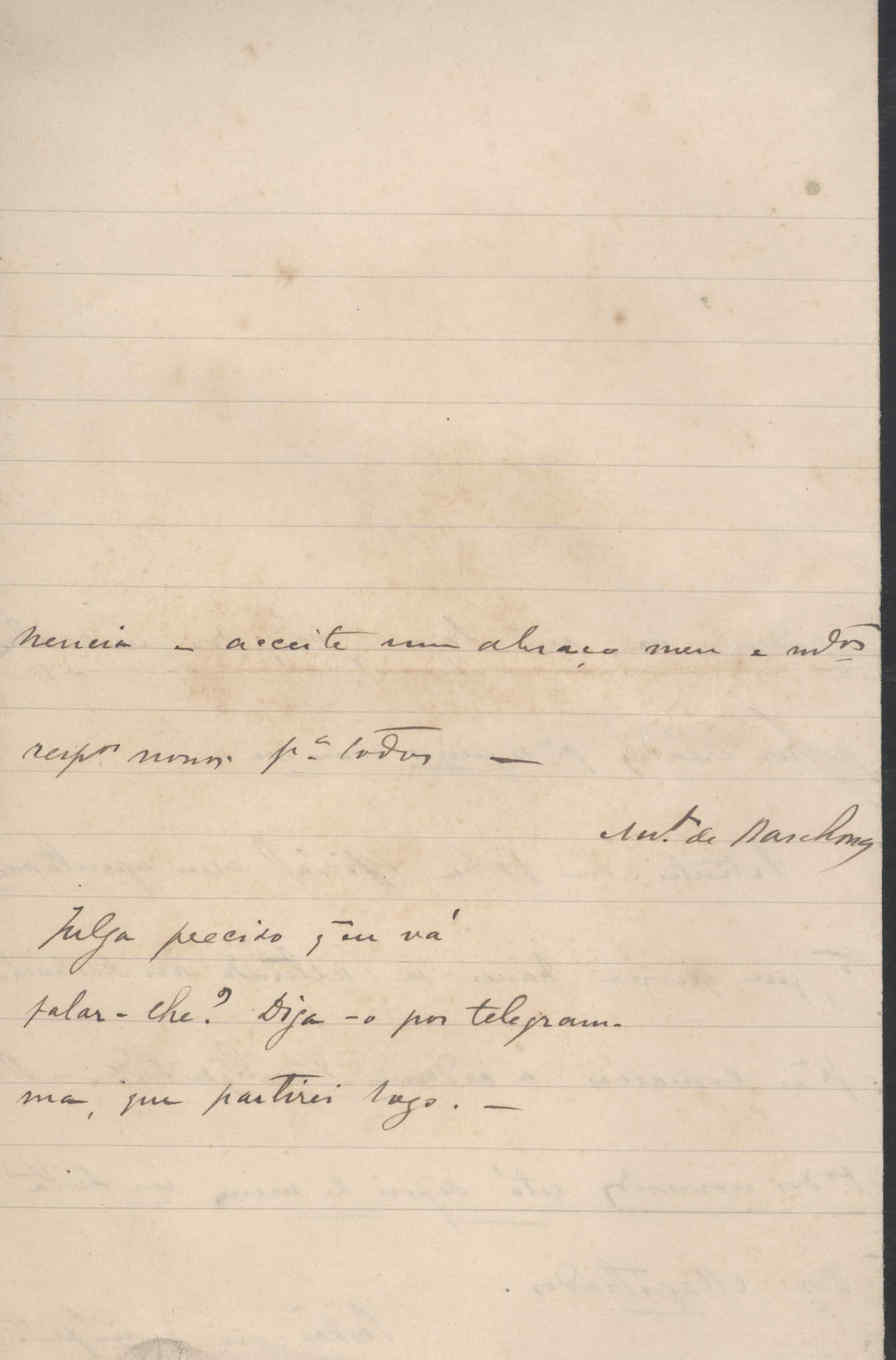 nencia e acceite um abraço meu e m.tos
resp.os nossos p.a todos —
Ant.o de
Julga preciso q̃ eu vá
falar-lhe? Diga-o por telegram-
ma, que partirei logo. —